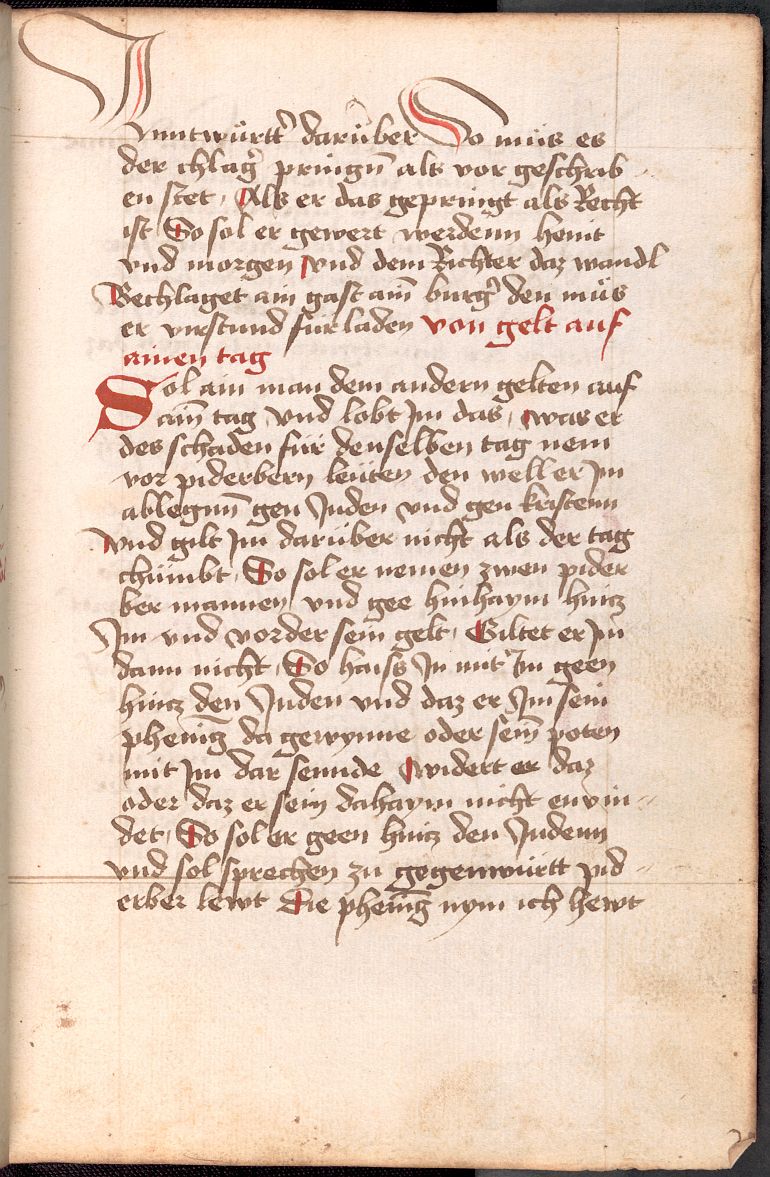 Anntwürtt’ darüber So müs es
der chlag’ pringn̄ als vor geschrib
en stet, Als er das gepringt als Recht
ist So sol er gewert werdenn hewt
vnd morgen vnd dem Richter daz wandl
Bechlaget ain gast ain̄ burg’ den müs
er vnstund fürladen von gelt auf
ainen tag
Sol ain man dem andern gelten auf
ain̄ tag vnd lobt Im das, was er
des schaden für denselben tag nem
vor piderbern leüten den well er Im
ablegnn̄ gen Juden vnd gen kristenn
vnd gilt Im darüber nicht als der tag
chümbt, So sol er nemen zwen pider
ber mannen vnd gee hinhaym hincz
Im vnd vorder sein gelt, Giltet er Im
dann nicht, So haiss In mit Im geen
hincz den Juden vnd daz er Im sein
phenīg da gewynne oder sein̄ poten
mit Im dar sennde widert er daz
oder daz er sein dahaym nicht envin-
det, So sol er geen hincz den Judenn
vnd sol sprechen zu gegenwürtt pid-
erber lewt Die phenīg nym ich hewt